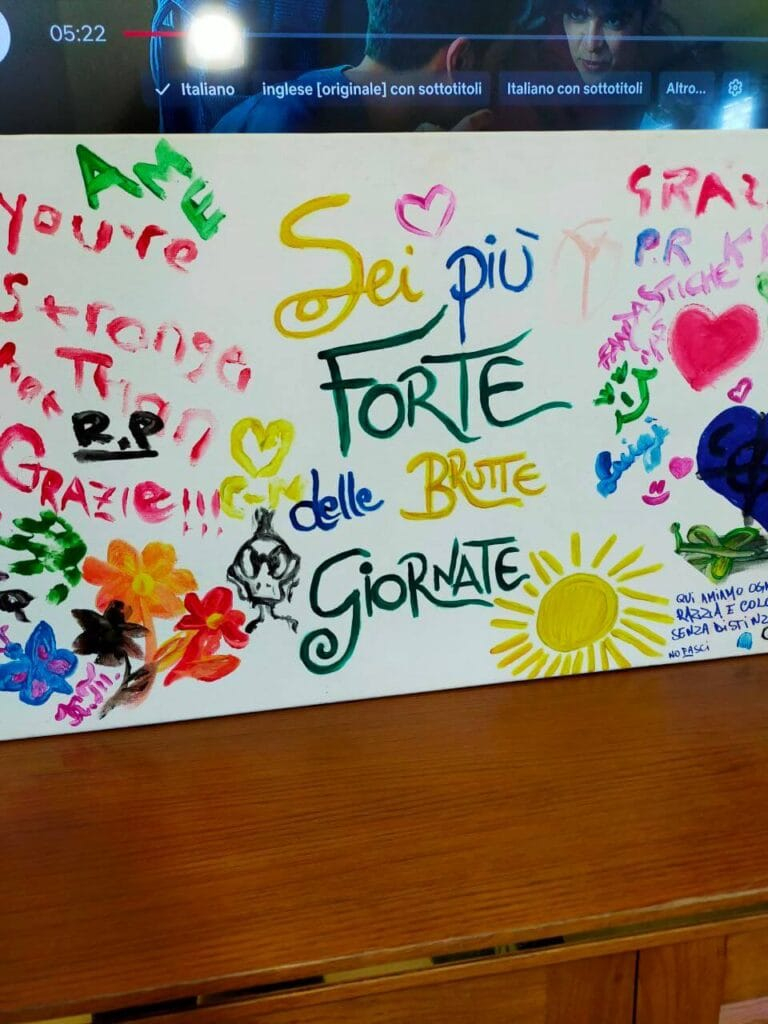 05:22
Italiano
inglese [originale] con sottotitoli
Italiano con sottotitoli
Altro...
AME
You're
Stronger
Than
R.P
GRAZIE!!!
Sei più
FORTE
delle BRUTTE
GIORNATE
C-M
P.R
FANTASTICHE
Luigi
QUI AMIAMO
RAZZIA E
SENZA
NO FASCI